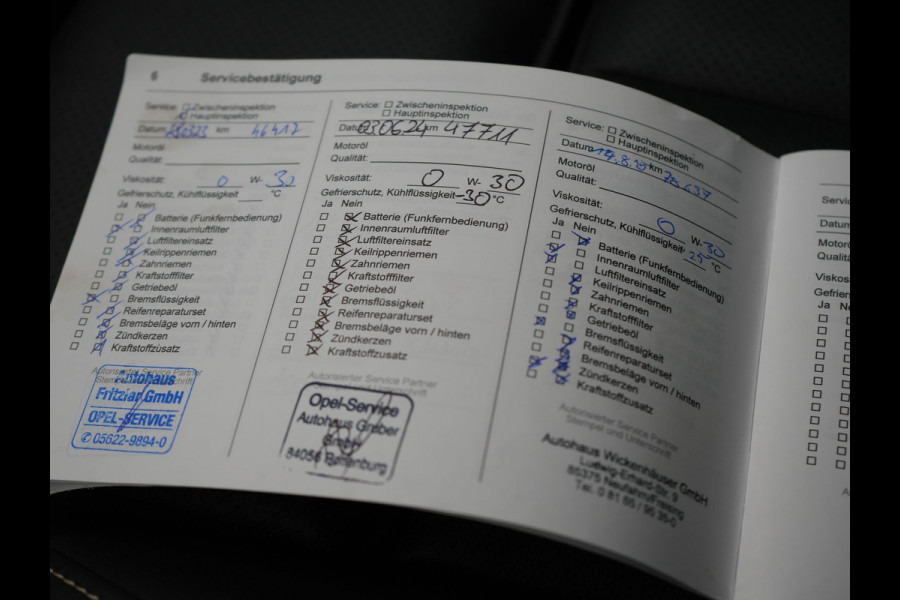 6 Servicebestätigung
Service: Zwischeninspektion
Hauptinspektion
Datum 230323 km 46412
Motoröl
Qualität:
Viskosität: 0 W- 30
Gefrierschutz, Kühlflüssigkeit °C
Ja Nein
Batterie (Funkfernbedienung)
Innenraumluftfilter
Luftfiltereinsatz
Keilrippenriemen
Zahnriemen
Kraftstofffilter
Getriebeöl
Bremsflüssigkeit
Reifenreparaturset
Bremsbeläge vorn / hinten
Zündkerzen
Kraftstoffzusatz
Autorisierter Service Partner
Autohaus
Fritzlar GmbH
OPEL-SERVICE
✆ 05622-9894-0
Service: Zwischeninspektion
Hauptinspektion
Datum 030624 km 47711
Motoröl
Qualität:
Viskosität: 0 W- 30
Gefrierschutz, Kühlflüssigkeit -30 °C
Ja Nein
Batterie (Funkfernbedienung)
Innenraumluftfilter
Luftfiltereinsatz
Keilrippenriemen
Zahnriemen
Kraftstofffilter
Getriebeöl
Bremsflüssigkeit
Reifenreparaturset
Bremsbeläge vorn / hinten
Zündkerzen
Kraftstoffzusatz
Autorisierter Service Partner
Opel-Service
Autohaus Gruber
GmbH
84056 Rottenburg
Service: Zwischeninspektion
Hauptinspektion
Datum km
Motoröl
Qualität:
Viskosität: 0 W- 30
Gefrierschutz, Kühlflüssigkeit -25 °C
Ja Nein
Batterie (Funkfernbedienung)
Innenraumluftfilter
Luftfiltereinsatz
Keilrippenriemen
Zahnriemen
Kraftstofffilter
Getriebeöl
Bremsflüssigkeit
Reifenreparaturset
Bremsbeläge vorn / hinten
Zündkerzen
Kraftstoffzusatz
Autorisierter Service Partner
Stempel und Unterschrift
Autohaus Wickenhäuser GmbH
Ludwig-Erhard-Str. 9
85375 Neufahrn/Freising
Tel. 0 81 65 / 95 35-0
Datum
Ja